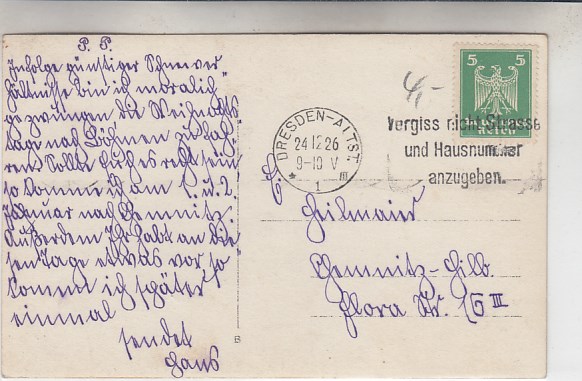 P. P.
Infolge günstiger Schneever-
hältnisse bin ich moralich
gezwungen die Weihnachts-
tage nach Böhmen zu fah-
ren. Sollte Euch es recht sein
so komm ich am 1. u. 2.
Januar nach Chemnitz.
Außerdem Ihr habt an die-
sen Tage etwas vor so
kommt ich später
einmal
sendet
Hans
5 5
DRESDEN-ALTST.
24 12 26
9-10 V
* 1 III
Vergiss nicht Strasse
und Hausnummer
anzugeben.
Heilmaier
Chemnitz-Hilb.
Flora Str. 16 III
B